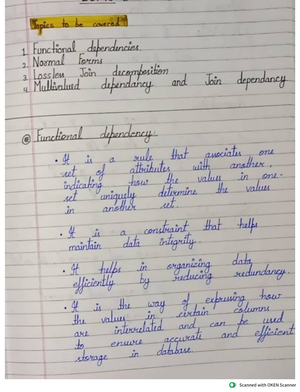 Topics to be covered
1. Functional dependencies
2. Normal Forms
3. Lossless Join decomposition
4. Multivalued dependancy and Join dependancy
Functional dependency.
• It is a rule that associates one
set of attributes with another,
indicating how the values in one
set uniquely determine the values
in another set.
• It is a constraint that helps
maintain data integrity.
• It helps in organizing data
efficiently by reducing redundancy.
• It is the way of expressing how
the values in certain columns
are interrelated and can be used
to ensure accurate and efficient
storage in database.
Scanned with OKEN Scanner